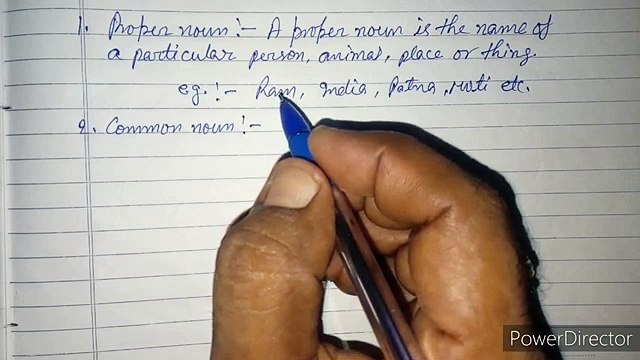 1. Proper noun :- A proper noun is the name of
a particular person, animal, place or thing.
eg. :- Ram, India, Patna, etc.
2. Common noun :-
PowerDirector